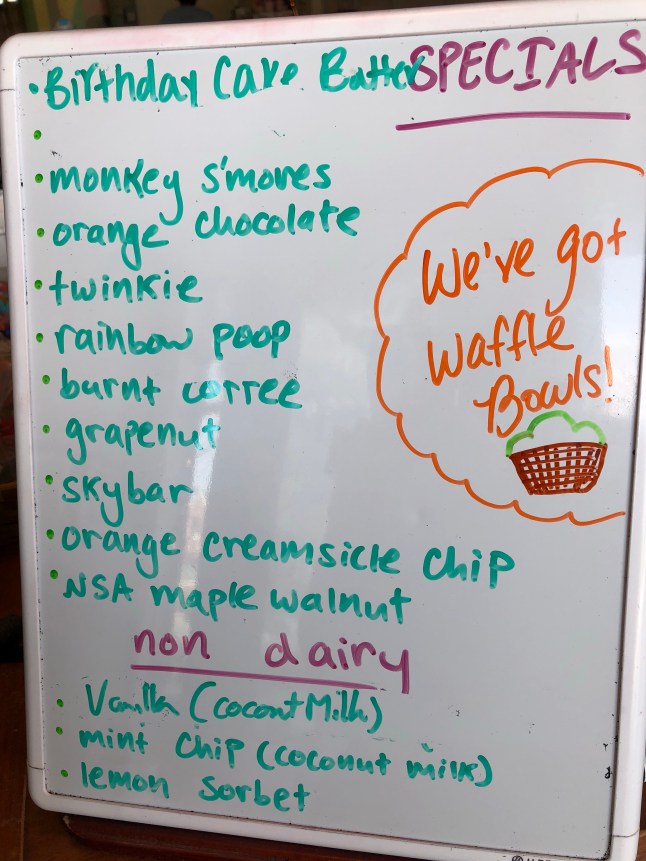 • Birthday Cake Batter
SPECIALS
•
• monkey s'mores
• orange chocolate
• twinkie
• rainbow poop
• burnt coffee
• grapenut
• skybar
• orange creamsicle chip
• NSA maple walnut
We've got
Waffle
Bowls!
non dairy
• Vanilla (coconut Milk)
• mint chip (coconut milk)
• lemon sorbet